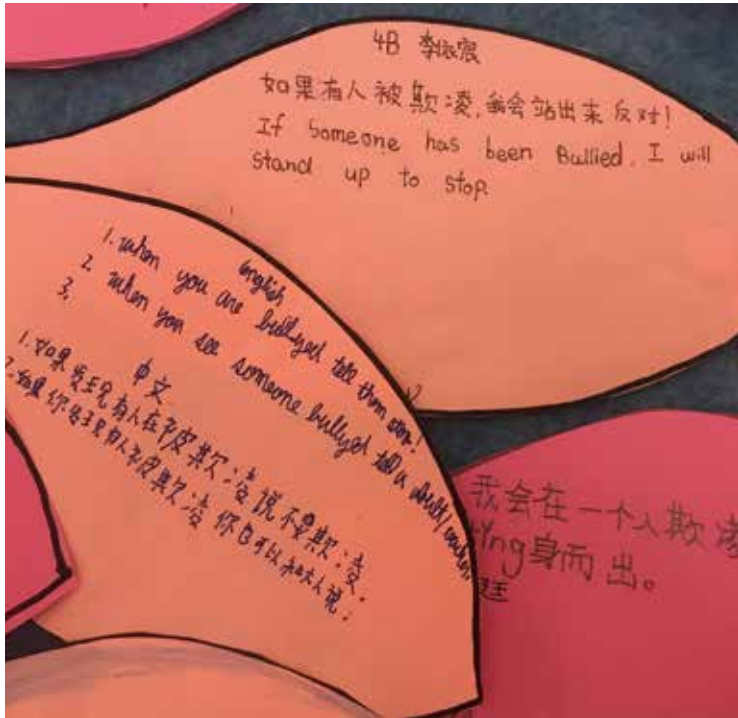 4B 李
如果有人被欺凌,我会站出来反对!
If Someone has been Bullied. I will
stand up to stop.
English
1. when you are bullyed tell them stop!
2. when you see someone bullyed tell a adult/teacher.
3.
中文
1. 如果发现有人在被欺凌说不要欺凌。
2. 如果你发现有人被欺凌你也可以和大人说。
我会在一个人欺凌
ting身而出。
廷